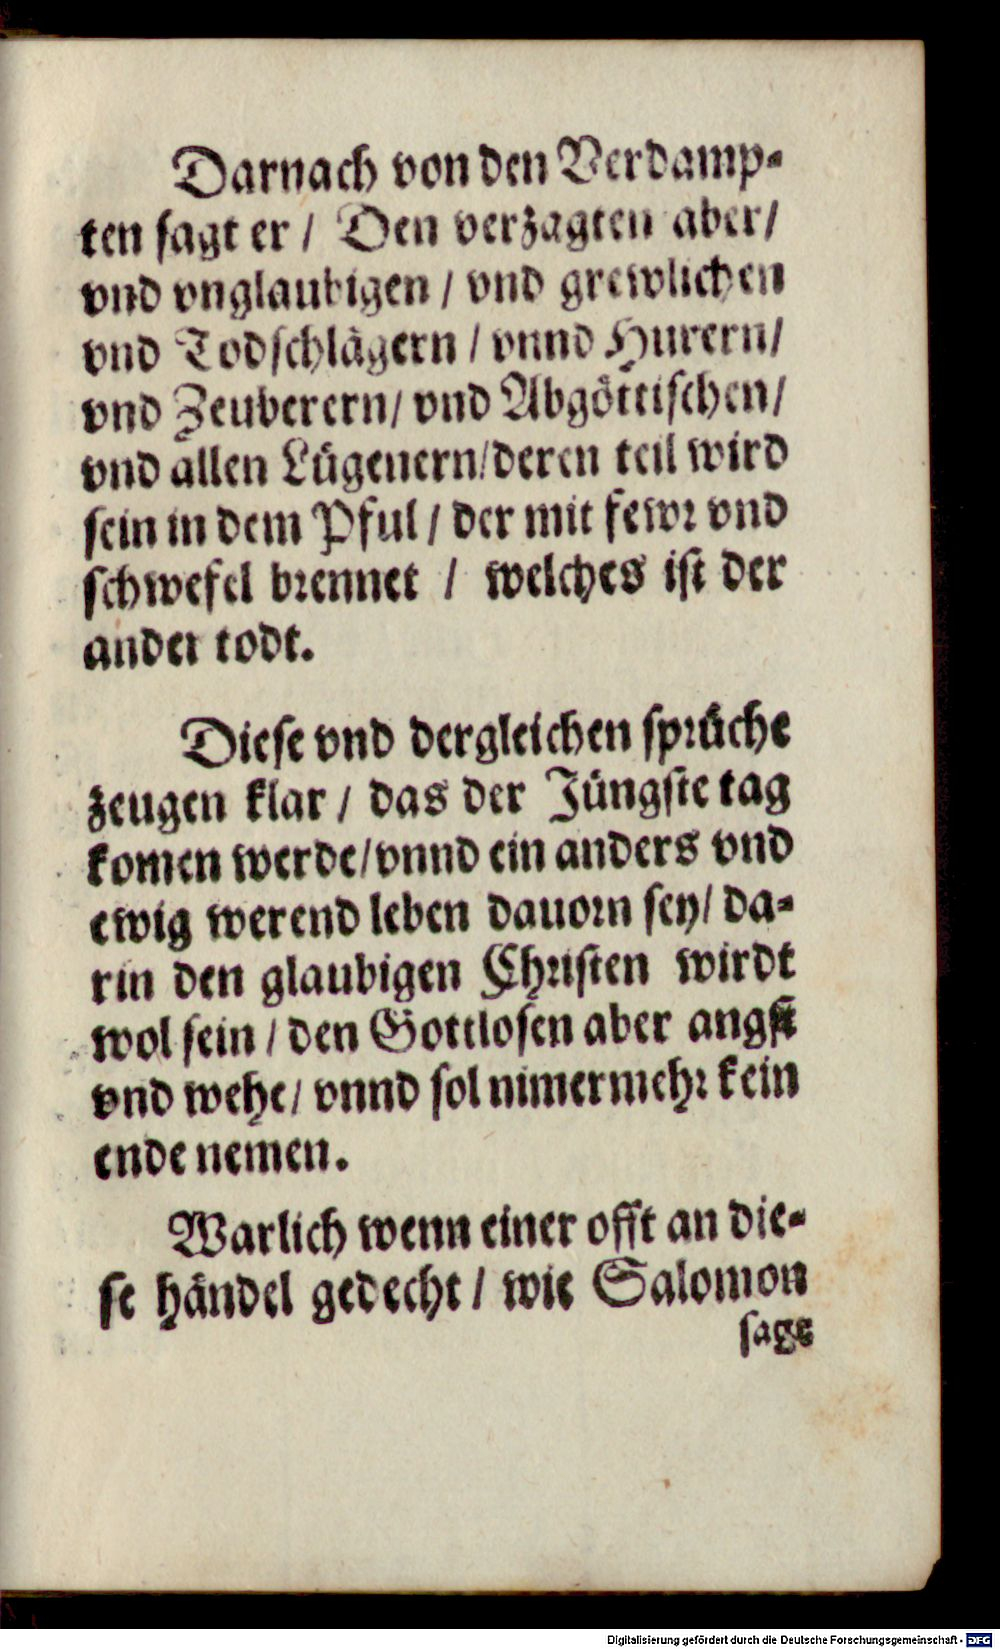 Darnach von den Verdamp-
ten sagt er / Den verzagten aber /
vnd vnglaubigen / vnd grewlichen
vnd Todschlägern / vnnd Hurern /
vnd Zeuberern / vnd Abgöttischen /
vnd allen Lügenern / deren teil wird
sein in dem Pful / der mit fewr vnd
schwefel brennet / welches ist der
ander todt.
Diese vnd dergleichen sprüche
zeugen klar / das der Jüngste tag
komen werde / vnnd ein anders vnd
ewig werend leben dauorn sey / da-
rin den glaubigen Christen wirdt
wol sein / den Gottlosen aber angst
vnd wehe / vnnd sol nimermehr kein
ende nemen.
Warlich wenn einer offt an die-
se händel gedecht / wie Salomon
sagt
Digitalisierung gefördert durch die Deutsche Forschungsgemeinschaft - DFG